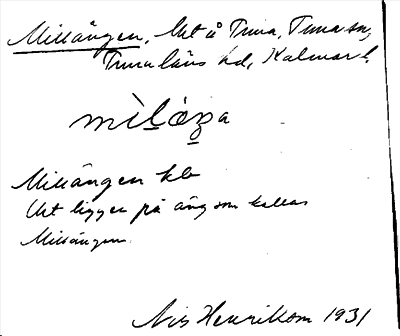 Millängen, Utå Tuna, Tuna sn,
Tunaläns hd, Kalmar l.
mìlæŋa
Millängen kb
Utligger på äng som kallas
Millängen.
Nils Henrikson 1931